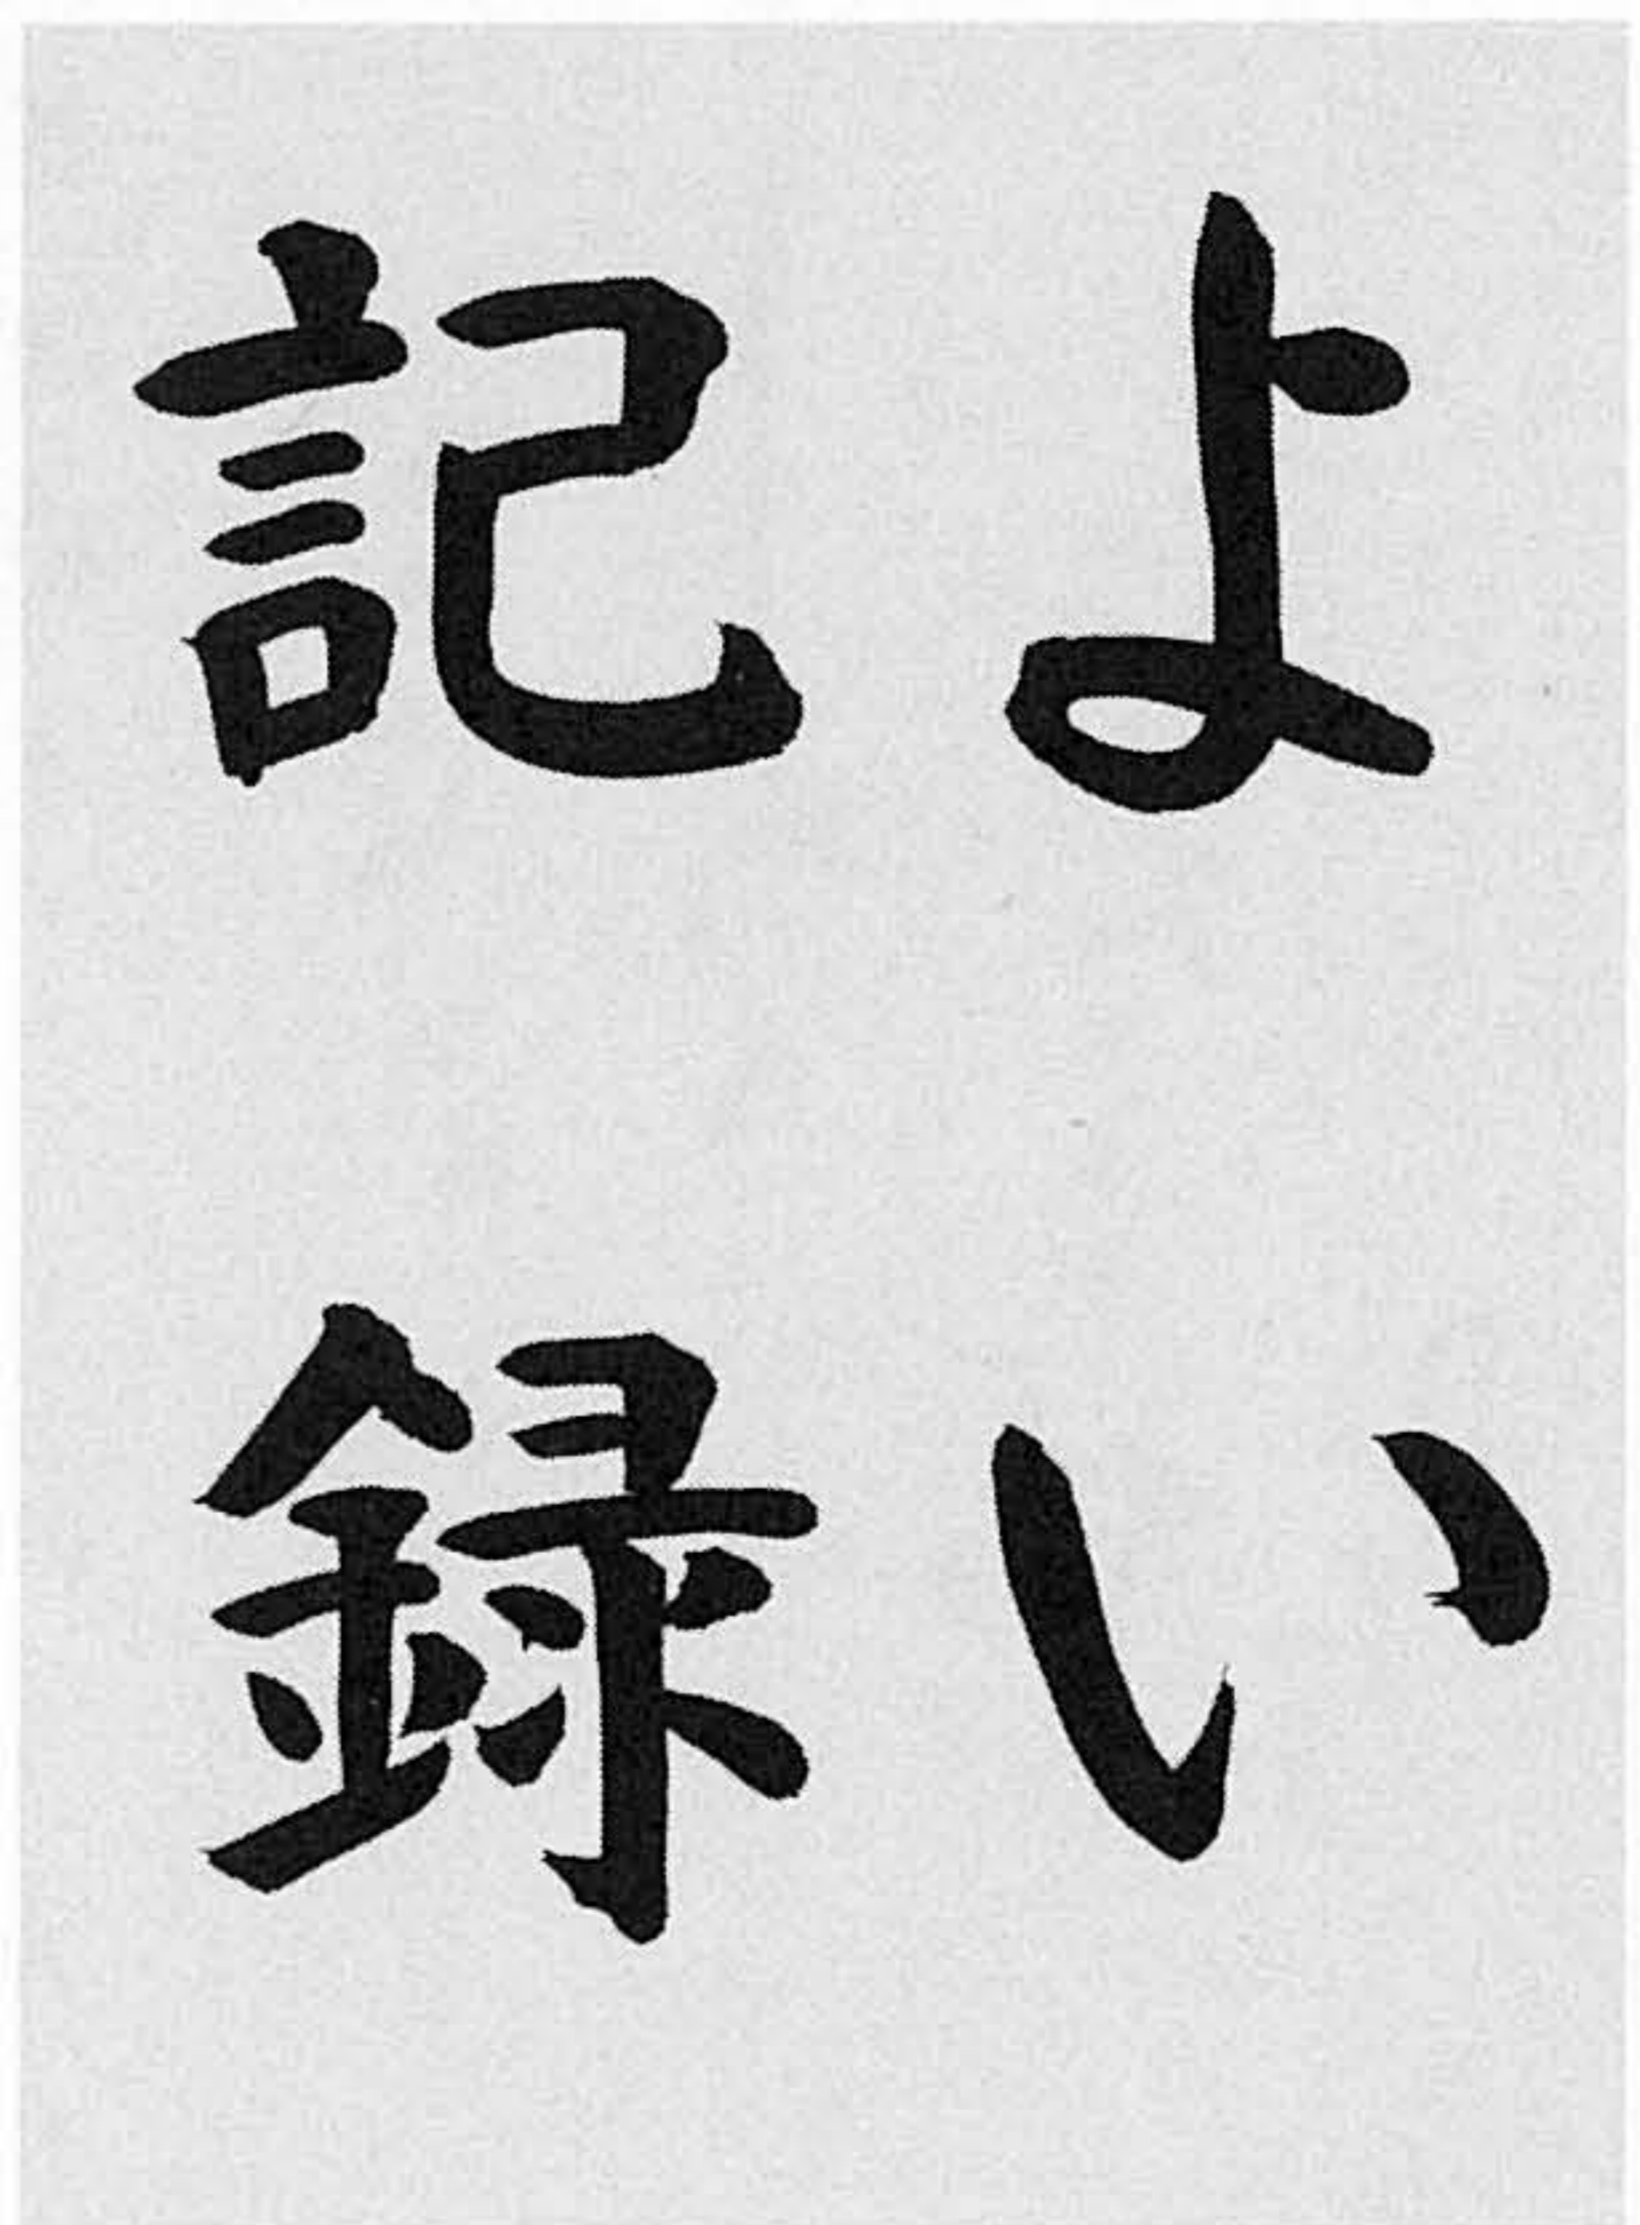 よい
記録